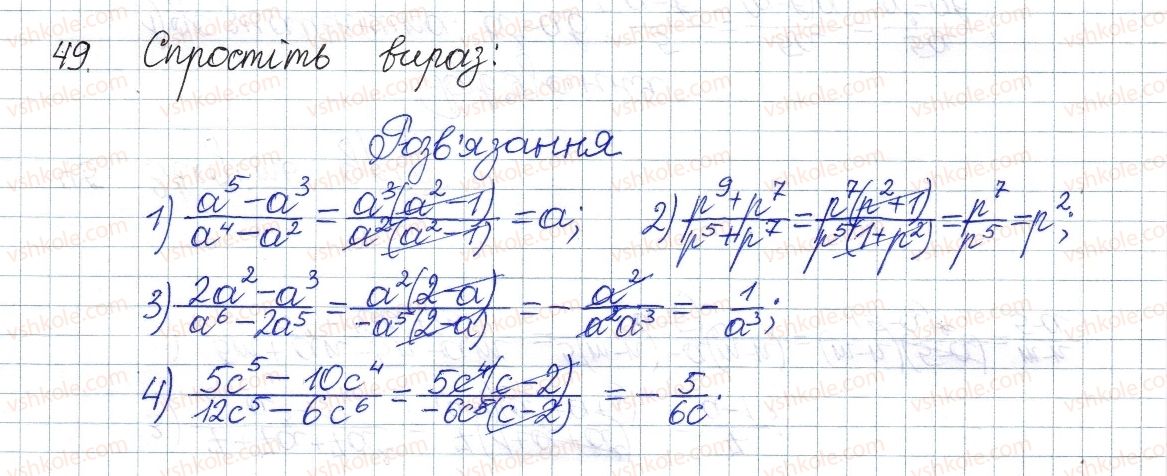 49. Спростіть вираз:
Розв'язання
1) (a^5 - a^3)/(a^4 - a^2) = (a^3(a^2 - 1))/(a^2(a^2 - 1)) = a; 2) (p^9 + p^7)/(p^5 + p^7) = (p^7(p^2 + 1))/(p^5(1 + p^2)) = p^7/p^5 = p^2;
3) (2a^2 - a^3)/(a^6 - 2a^5) = (a^2(2 - a))/(-a^5(2 - a)) = - a^2/(a^2a^3) = - 1/a^3;
4) (5c^5 - 10c^4)/(12c^5 - 6c^6) = (5c^4(c - 2))/(-6c^5(c - 2)) = - 5/6c.